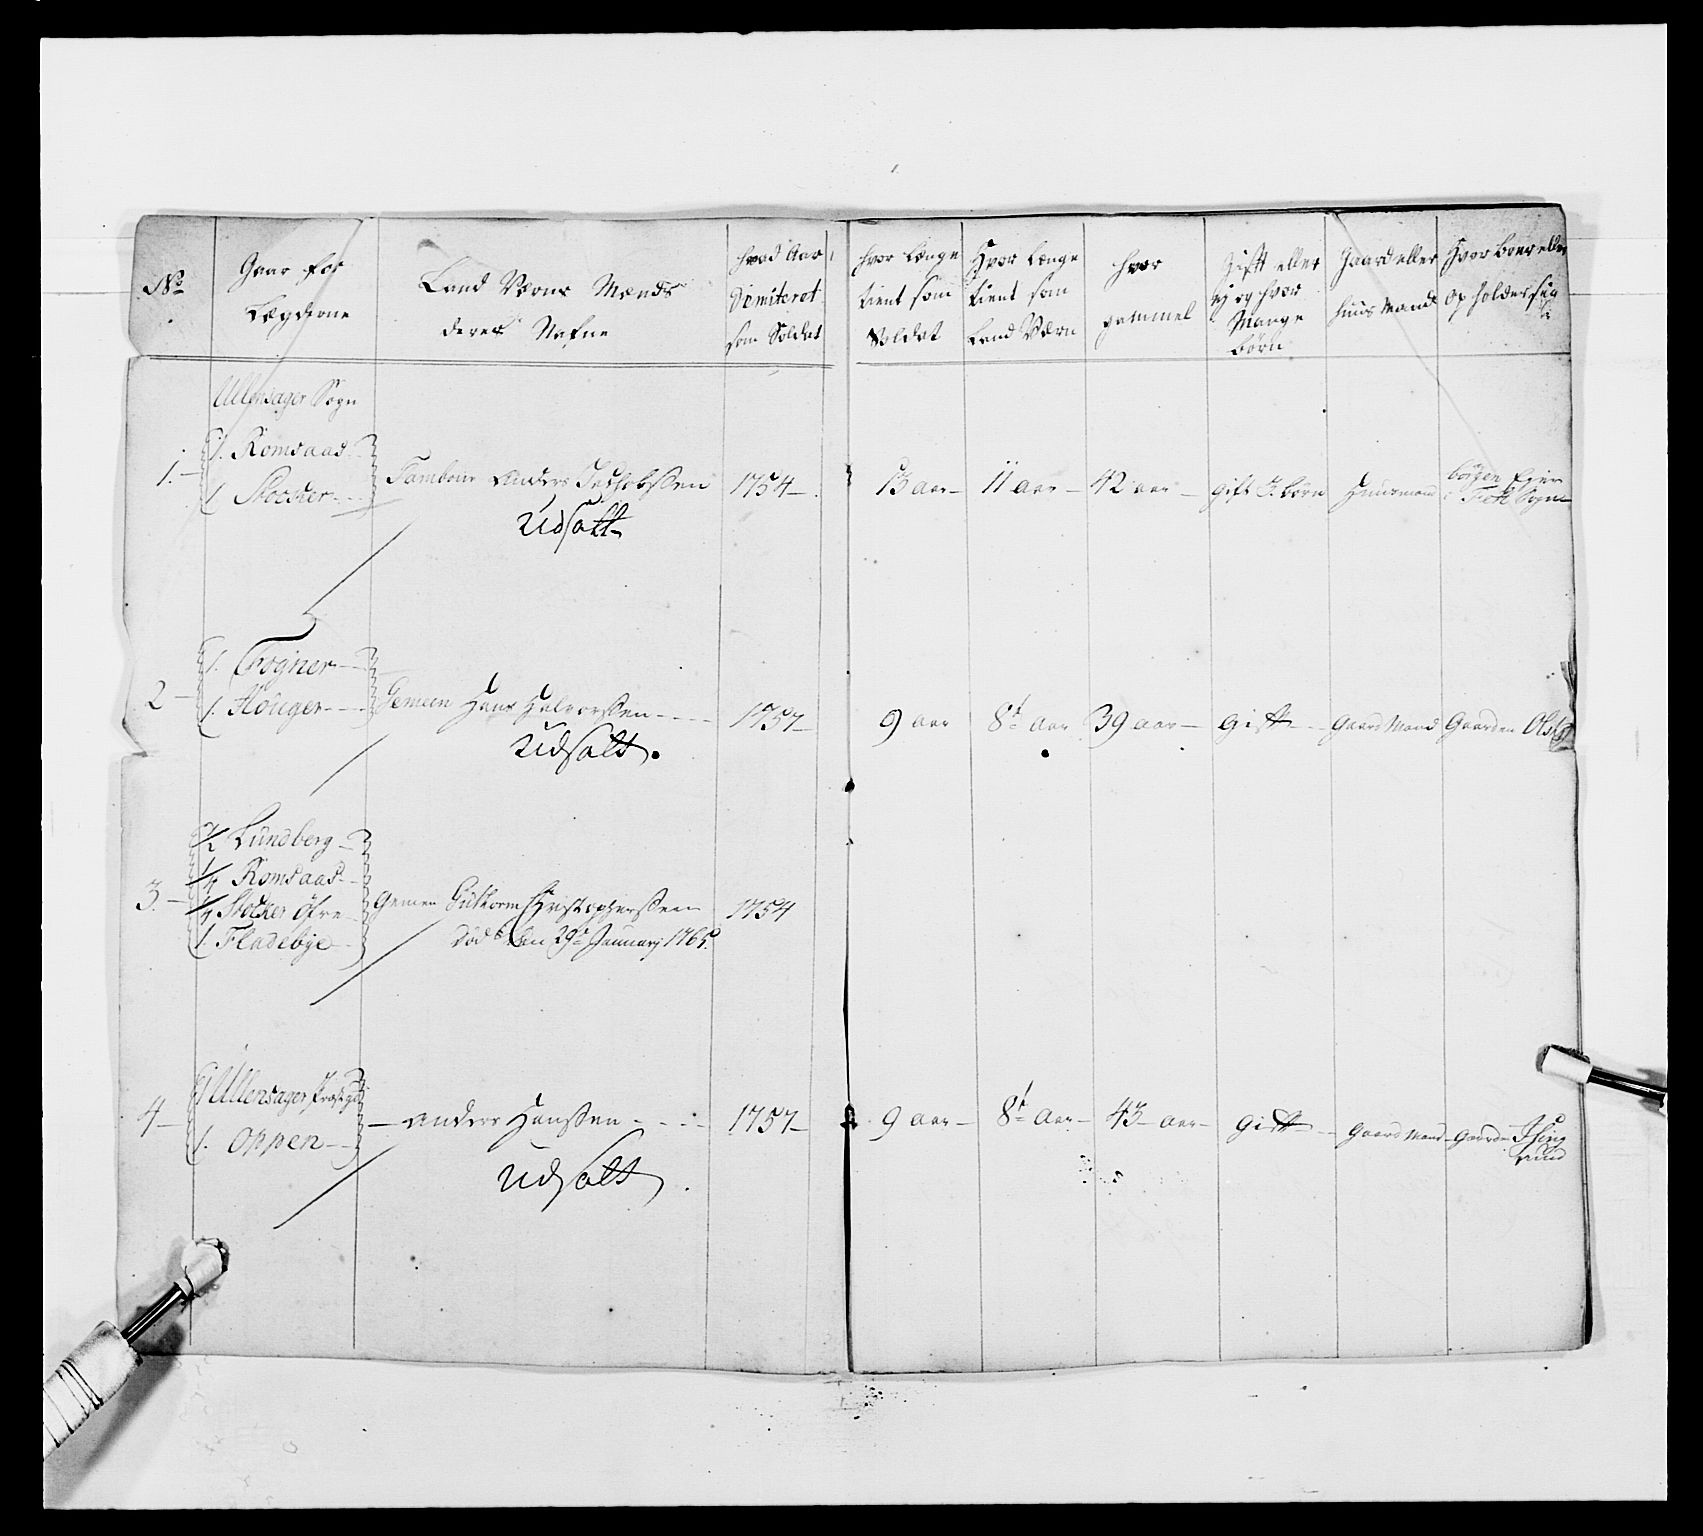 No
Gaar for
Lægderne
Land Værns Mænds
deres Nafne
hvad Aar
Dimiteret
som Soldat
hvor længe
tient som
Soldat
Hvor længe
tient som
Land Værn
hvor
gammel
Gift eller
ej og hvor
Mange
börn
Gaard eller
Huus Mand
Hvor boer eller
opholder sig
Ullensager Sogn
1. 1. Romsaas
1. Stocker
Tambour Anders Jachobssen 1754 13 aar 11 aar 42 aar gift 3. börn Huusmand
Sogn
Udsatt
2 1. Fogner
1. Houger
Gemeen Hans Halvorssen 1757 9 aar 8t aar 39 aar gift Gaard Mand Gaarden
Udsatt.
3. 1/2 Lundberg
1/4 Romsaas
1/4 Stocker öfre
1. Fladebye
Gemen Guttorm Christophersen 1754
Död den 29de January 1765
4 1 Ullensager Præstgd
1. Oppen
Anders Hanssen 1757 9 aar 8t aar 43 aar gift Gaard Mand Gaarden
Udsatt.